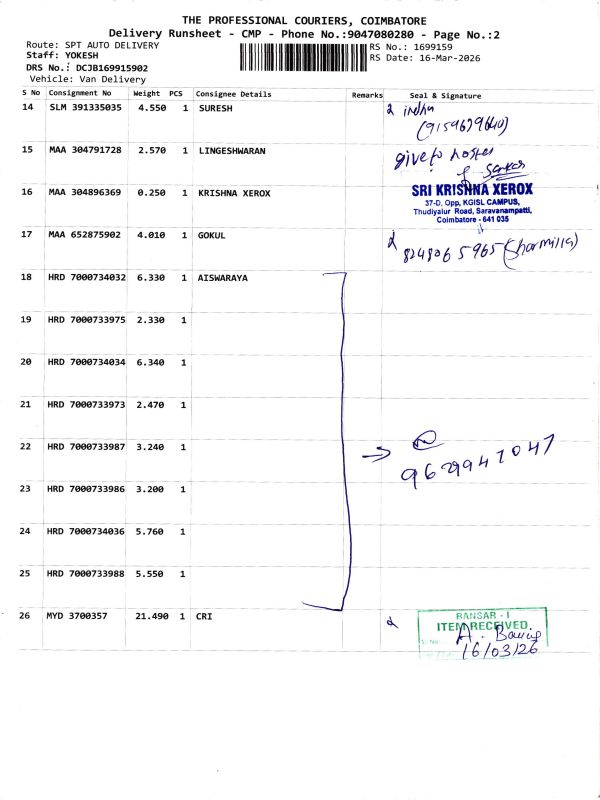 THE PROFESSIONAL COURIERS, COIMBATORE
Delivery Runsheet - CMP - Phone No.:9047080280 - Page No.:2
Route: SPT AUTO DELIVERY
Staff: YOKESH
DRS No.: DCJB169915902
Vehicle: Van Delivery
RS No.: 1699159
RS Date: 16-Mar-2026
S No Consignment No Weight PCS Consignee Details Remarks Seal & Signature
14 SLM 391335035 4.550 1 SURESH indhu
(9159679640)
15 MAA 304791728 2.570 1 LINGESHWARAN give to
16 MAA 304896369 0.250 1 KRISHNA XEROX
SRI KRISHNA XEROX
37-D, Opp, KGISL CAMPUS,
Thudiyalur Road, Saravanampatti,
Coimbatore - 641 035
17 MAA 652875902 4.010 1 GOKUL
824806 5965 (Sharmilla)
18 HRD 7000734032 6.330 1 AISWARAYA
19 HRD 7000733975 2.330 1
20 HRD 7000734034 6.340 1
21 HRD 7000733973 2.470 1
22 HRD 7000733987 3.240 1
9629947047
23 HRD 7000733986 3.200 1
24 HRD 7000734036 5.760 1
25 HRD 7000733988 5.550 1
26 MYD 3700357 21.490 1 CRI
RANSAR - I
ITEM RECEIVED
16/03/26